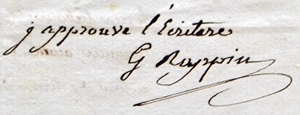 j approuve l'Ecriture
G Rappin